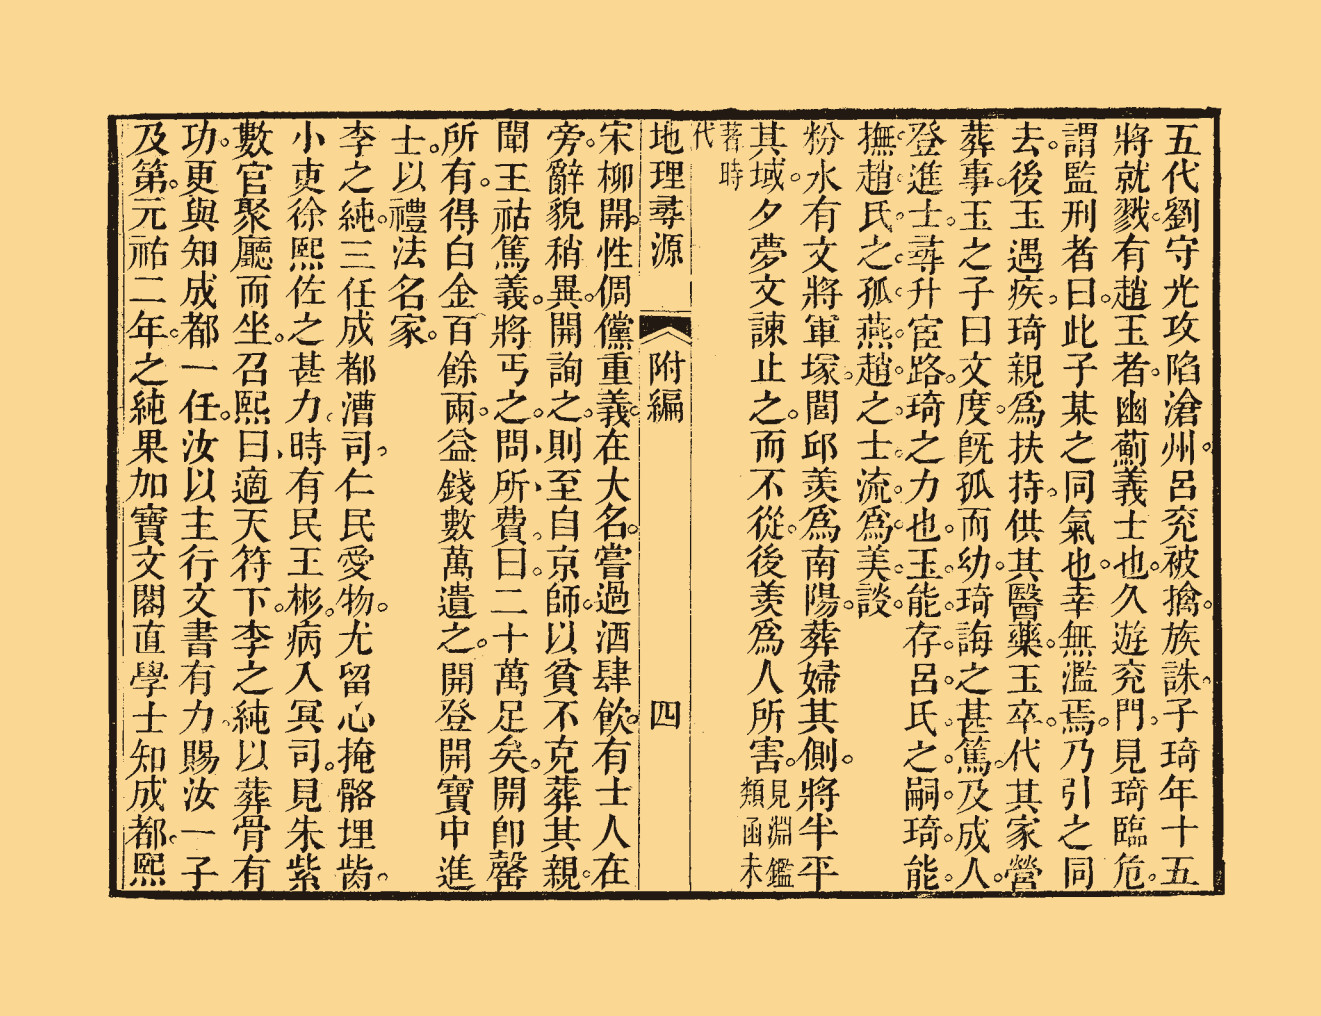 五代劉守光攻陷滄州。呂兖被擒。族誅。子琦年十五
將就戮。有趙玉者。幽薊義士也。久遊兖門。見琦臨危。
謂監刑者曰。此子某之同氣也。幸無濫焉。乃引之同
去。後玉遇疾。琦親爲扶持。供其醫藥。玉卒。代其家營
葬事。玉之子曰文度。旣孤而幼。琦誨之甚篤。及成人。
登進士。尋升宦路。琦之力也。玉能存呂氏之嗣。琦能
撫趙氏之孤。燕趙之士。流爲美談。
粉水有文將軍塚。閭邱羨爲南陽。葬婦其側。將半平
其域。夕夢文諫止之。而不從。後羨爲人所害。見淵鑑類函未
著時代
地理尋源 附編 四
宋柳開。性倜儻重義。在大名。嘗過酒肆飲。有士人在
旁。辭貌稍異。開詢之。則至自京師。以貧不克葬其親。
聞王祜篤義。將丐之。問所費。曰。二十萬足矣。開卽罄
所有。得白金百餘兩。益錢數萬遺之。開登開寶中進
士。以禮法名家。
李之純。三任成都漕司。仁民愛物。尤留心掩骼埋胔。
小吏徐熙佐之甚力。時有民王彬。病入冥司。見朱紫
數官聚廳而坐。召熙曰。適天符下。李之純以葬骨有
功。更與知成都一任。汝以主行文書有力。賜汝一子
及第。元祐二年。之純果加寶文閣直學士知成都。熙